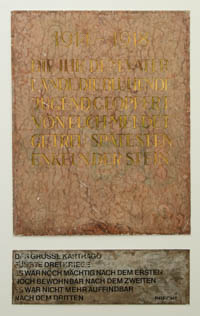 1914 - 1918
DIE IHR DEM VATER
LANDE DIE BLÜHENDE
JUGEND GEOPFERT
VON EUCH MELDET
GETREU SPÄTESTEN
ENKELN DER STEIN
DAS GROSSE KARTHAGO
FÜHRTE DREI KRIEGE
ES WAR NOCH MÄCHTIG NACH DEM ERSTEN
NOCH BEWOHNBAR NACH DEM ZWEITEN
ES WAR NICHT MEHR AUFFINDBAR
NACH DEM DRITTEN BRECHT